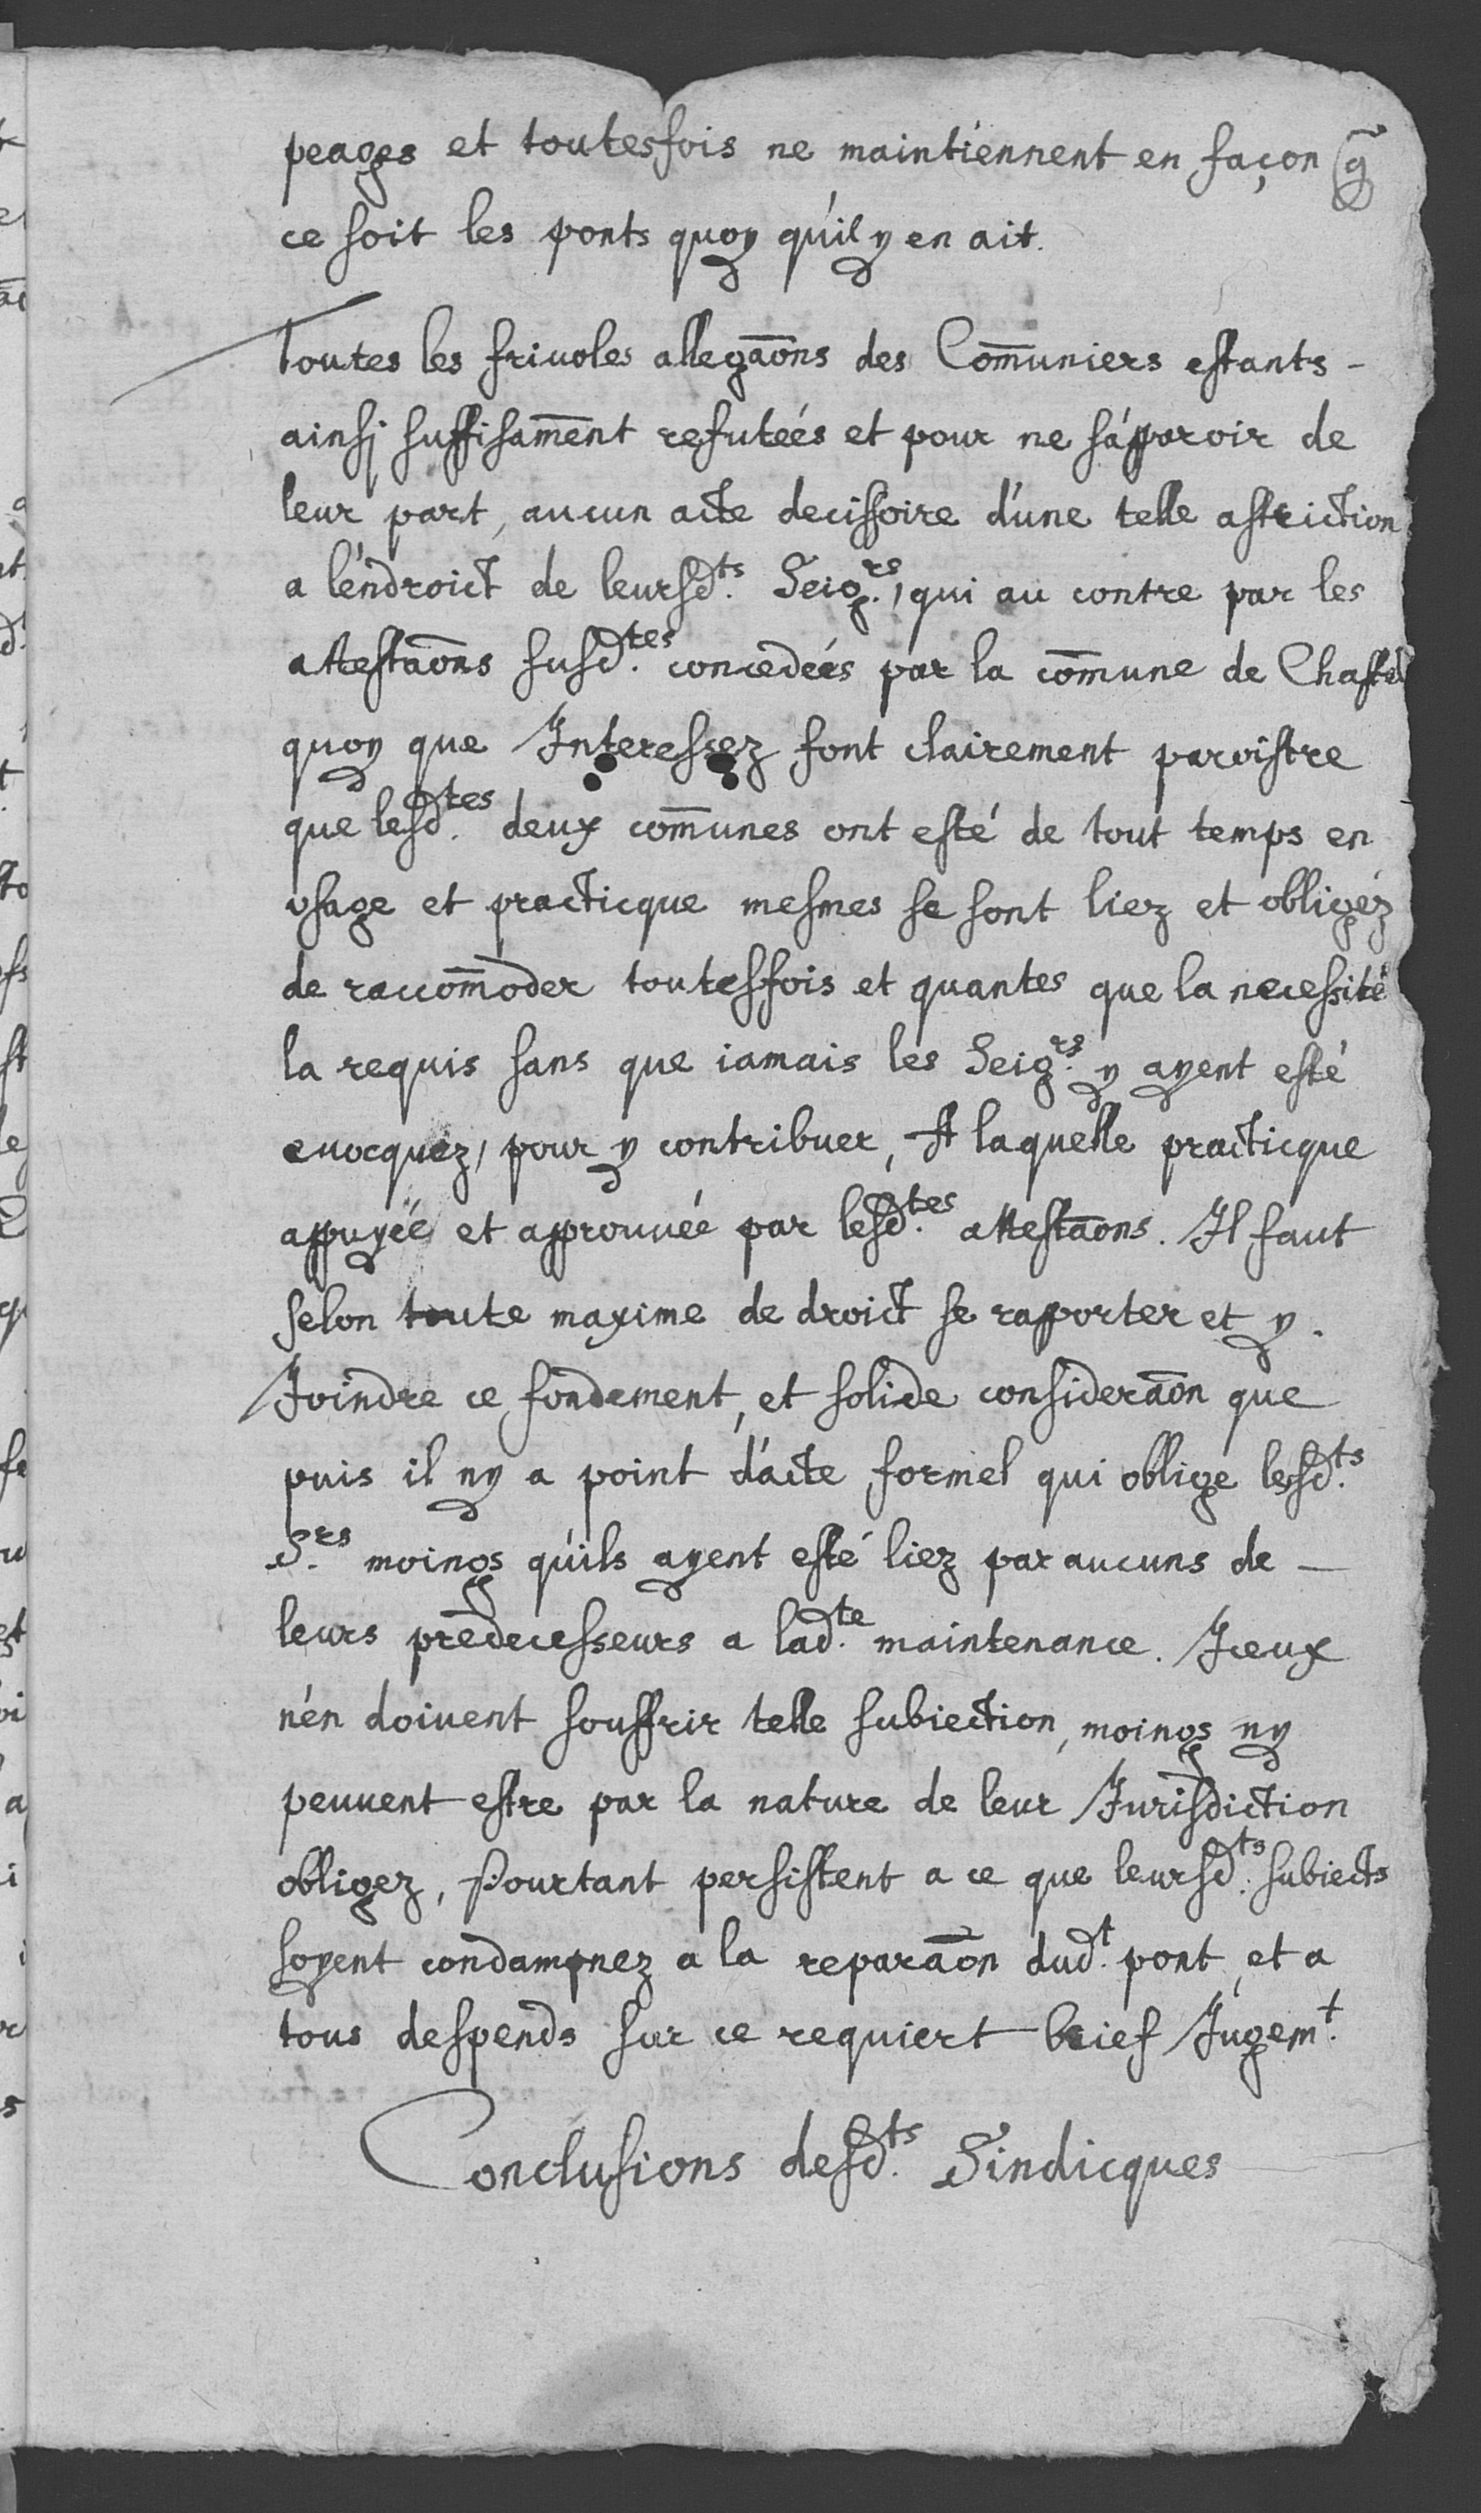 peages et toutesfois ne maintiennent en façon q̃
ce soit les ponts quoy qu'il y en ait.
Toutes les friuoles allegaõns des Com̃uniers estants -
ainsj suffisam̃ent refuteés et pour ne s'apparoir de
leur part, aucun acte decissoire d'une telle astriction
a l'endroict de leursd.ts Seig.rs, qui au contre par les
attestaõns susd.tes concedeés par la com̃une de Chastel
quoy que Interessez font clairement paroistre
que lesd.tes deux com̃unes ont esté de tout temps en
vsage et practicque mesmes se sont liez et obligéz
de raccom̃oder toutesfois et quantes que la necessité
la requis sans que iamais les Seig.rs y ayent esté
euocquez, pour y contribuer, A laquelle practicque
appuyeé et approuueé par lesd.tes attestaõns. Il faut
selon toute maxime de droict se rapporter et y.
Joindre ce fondement, et solide consideraõn que
puis il ny a point d'acte formel qui oblige lesd.ts
S.rs moings qu'ils ayent esté liez par aucuns de -
leurs predecesseurs a lad.te maintenance. Iceux
n'en doiuent souffrir telle subiection, moings ny
peuuent estre par la nature de leur Jurisdiction
obligez, Pourtant persistent a ce que leursd.ts subiects
soyent condampnez a la reparaõn dud.t pont, et a
tous despends sur ce requiert brief Jugem.t
Conclusions desd.ts Sindicques